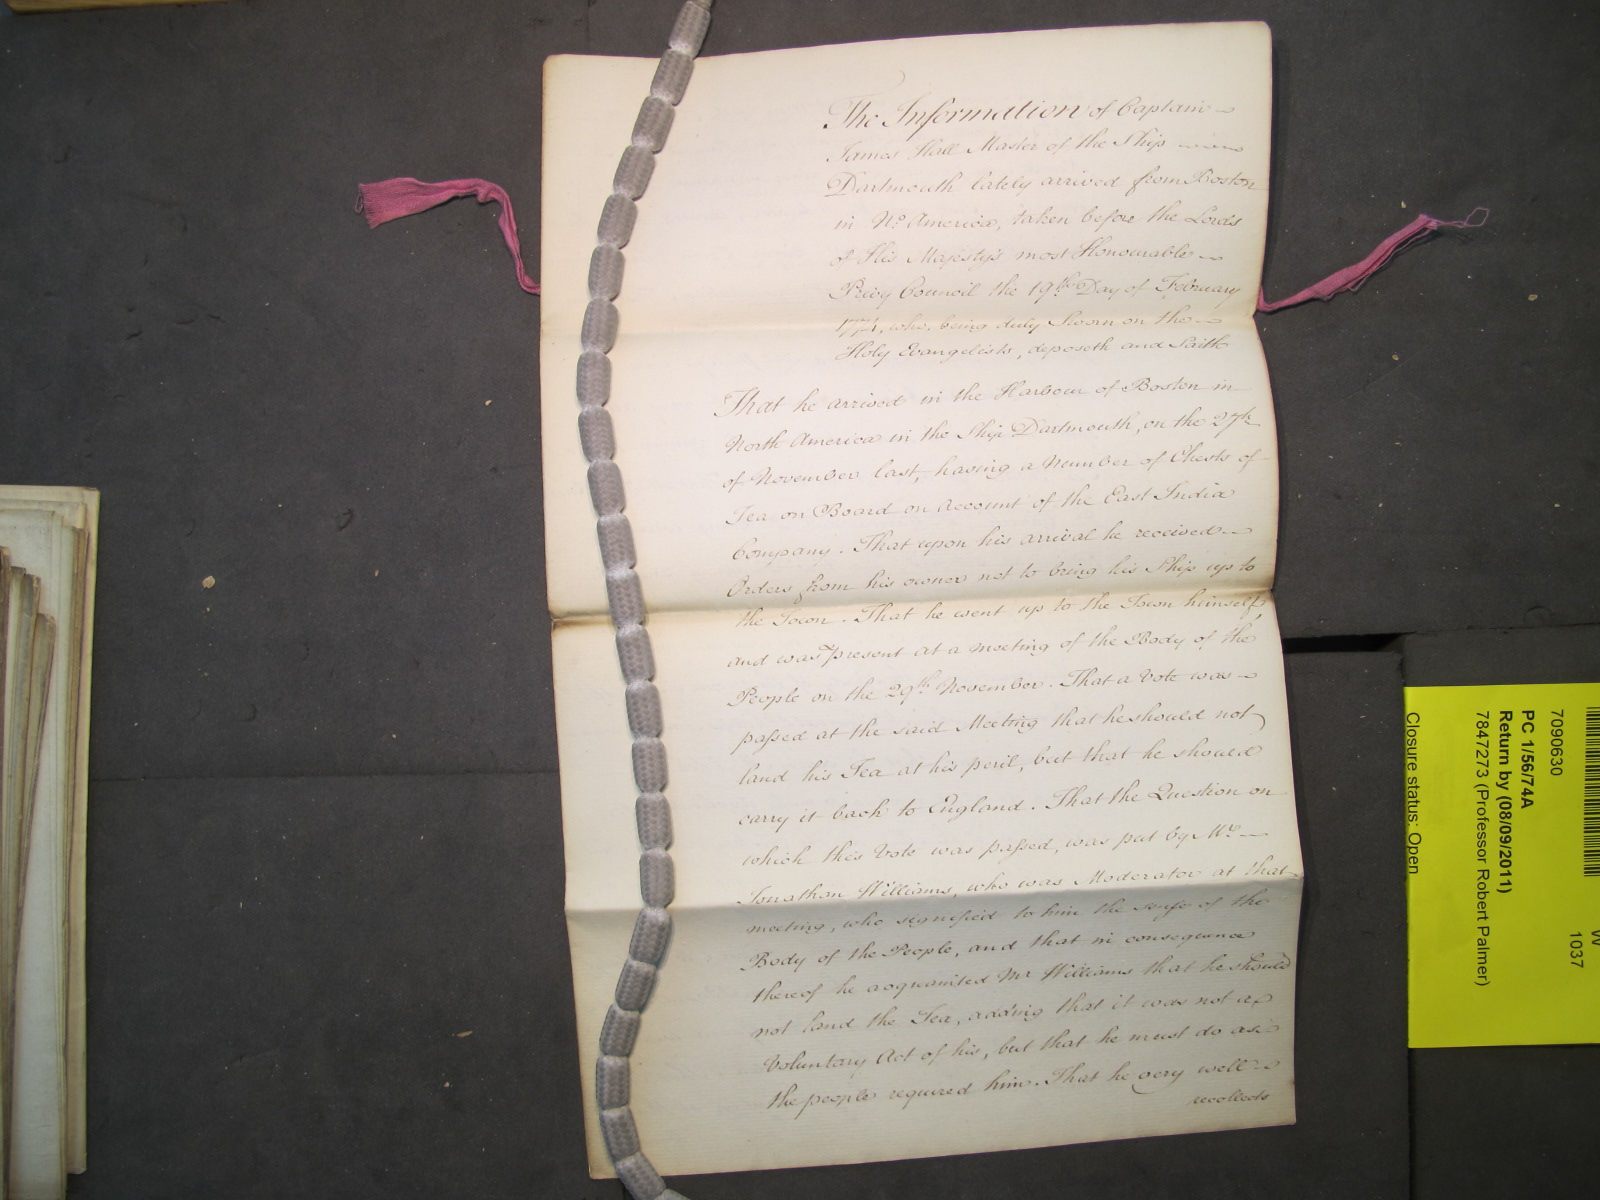 The Information of Captain
James Hall Master of the Ship
Dartmouth lately arrived from Boston
in No. America, taken before the Lords
of His Majesty's most Honourable
Privy Council the 19th Day of February
1774, who, being duly Sworn on the
Holy Evangelists, deposeth and Saith
That he arrived in the Harbour of Boston in
North America in the Ship Dartmouth, on the 27th
of November last, having a Number of Chests of
Tea on Board on Account of the East India
Company. That upon his arrival he received
Orders from his owner not to bring his Ship up to
the Town. That he went up to the Town himself
and was present at a meeting of the Body of the
People on the 29th November. That a Vote was
passed at the said Meeting that he should not
land his Tea at his peril, but that he should
carry it back to England. That the Question on
which this Vote was passed, was put by Mr.
Jonathan Williams, who was Moderator at that
meeting, who signified to him the sense of the
Body of the People, and that in consequence
thereof he acquainted Mr Williams that he should
not land the Tea, adding that it was not a
Voluntary Act of his, but that he must do as
the people required him. That he very well
recollects
7090630
PC 1/56/74A
Return by (08/09/2011)
7847273 (Professor Robert Palmer)
Closure status: Open
W
1037